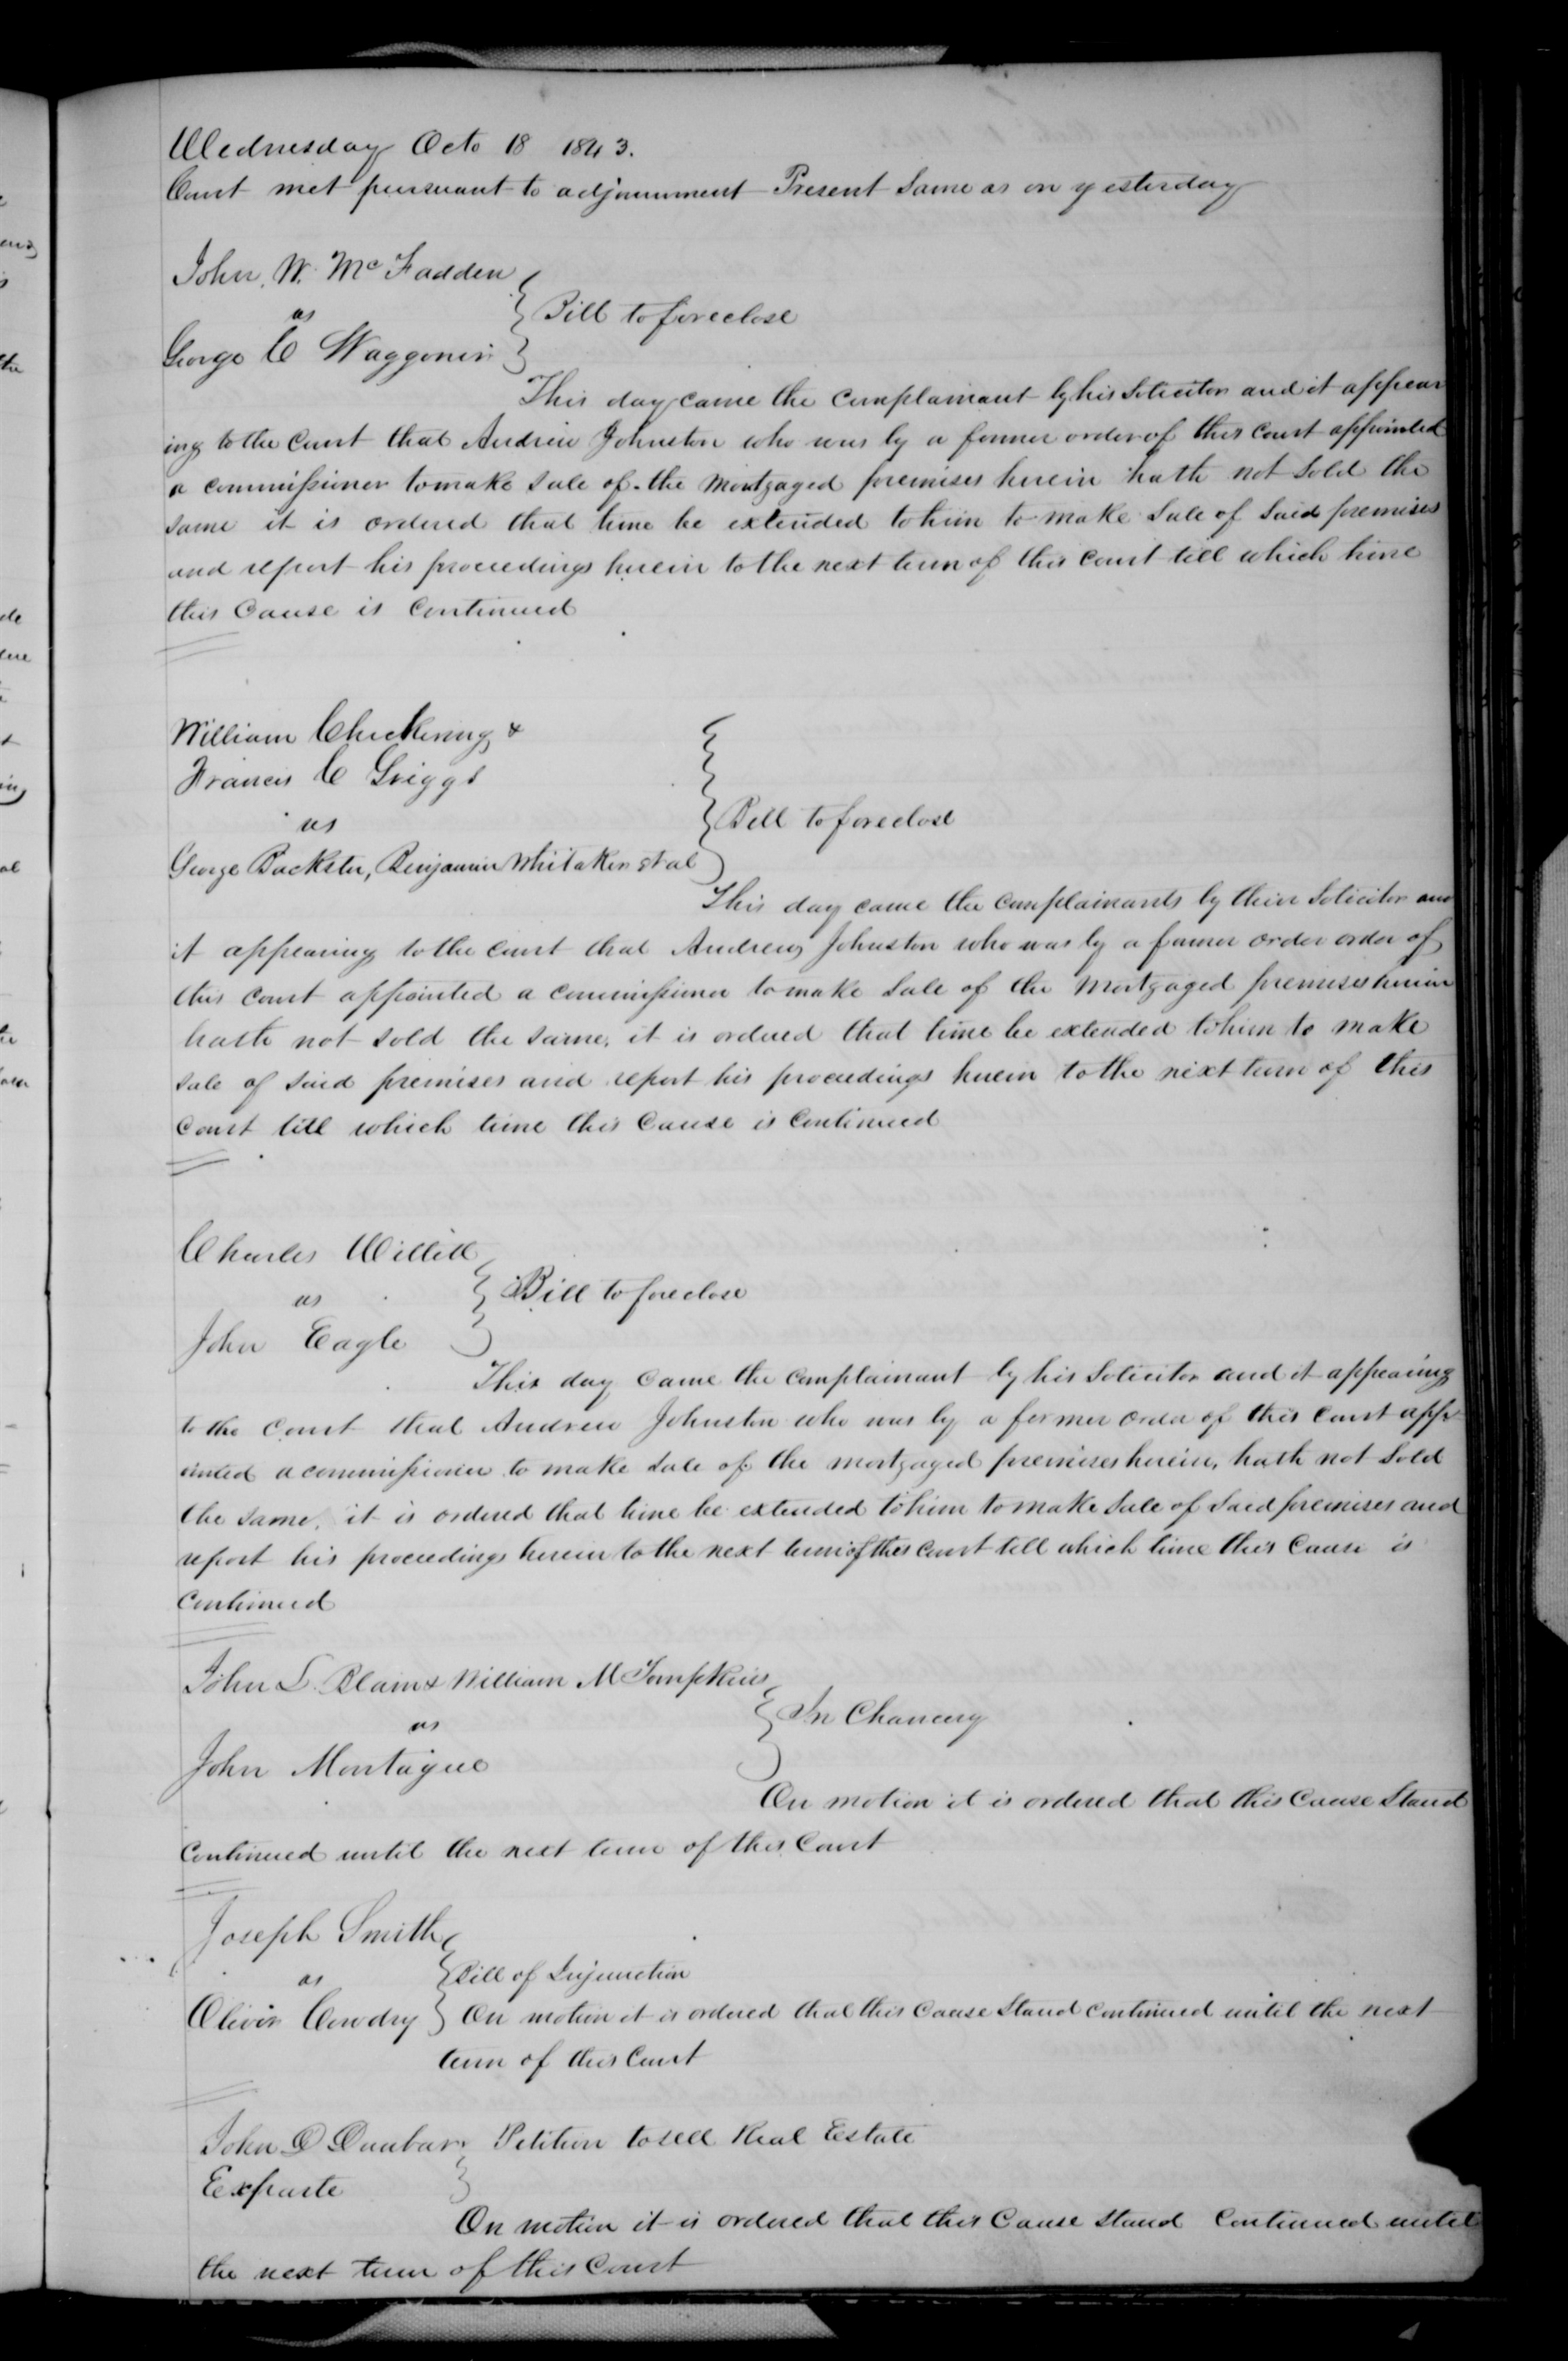 Wednesday Octo 18 1843.
Court met pursuant to adjournment Present Same as on yesterday
John. W. McFadden
vs
Bill to foreclose
George C Waggoner
This day came the complainant by his Solicitor and it appear
ing to the Court that Andrew Johnston who was by a former order of this Court appointed
a commissioner to make sale of the Mortgaged premises herein hath not Sold the
same it is ordered that time be extended to him to make Sale of Said premises
and report his proceedings herein to the next term of this Court till which time
this Cause is Continued
William Chickering &
Francis C Griggs
vs
Bill to foreclose
George Backster, Benjamin Whitaker et al
This day came the Complainants by their Solicitor and
it appearing to the Court that Andrew Johnston who was by a former order order of
this Court appointed a commissioner to make Sale of the Mortgaged premises herein
hath not sold the same, it is ordered that time be extended to him to make
sale of said premises and report his proceedings herein to the next term of this
Court till which time this Cause is Continued
Charles Willett
vs
Bill to foreclose
John Eagle
This day Came the Complainant by his Solicitor and it appearing
to the Court that Andrew Johnston who was by a former order of this Court appo
inted a commissioner to make sale of the mortgaged premises herein, hath not Sold
the same, it is ordered that time be extended to him to make Sale of Said premises and
report his proceedings herein to the next term of this Court till which time this Cause is
Continued
John L. Blain & William M Tompkins
vs
In Chancery
John Montague
On motion it is ordered that this Cause Stand
Continued until the next term of this Court
Joseph Smith
vs
Bill of Injunction
Oliver Cowdry
On motion it is ordered that this Cause Stand Continued until the next
term of this Court
John D Dunbar
Petition to sell Real Estate
Exparte
On motion it is ordered that this Cause stand Continued until
the next term of this Court